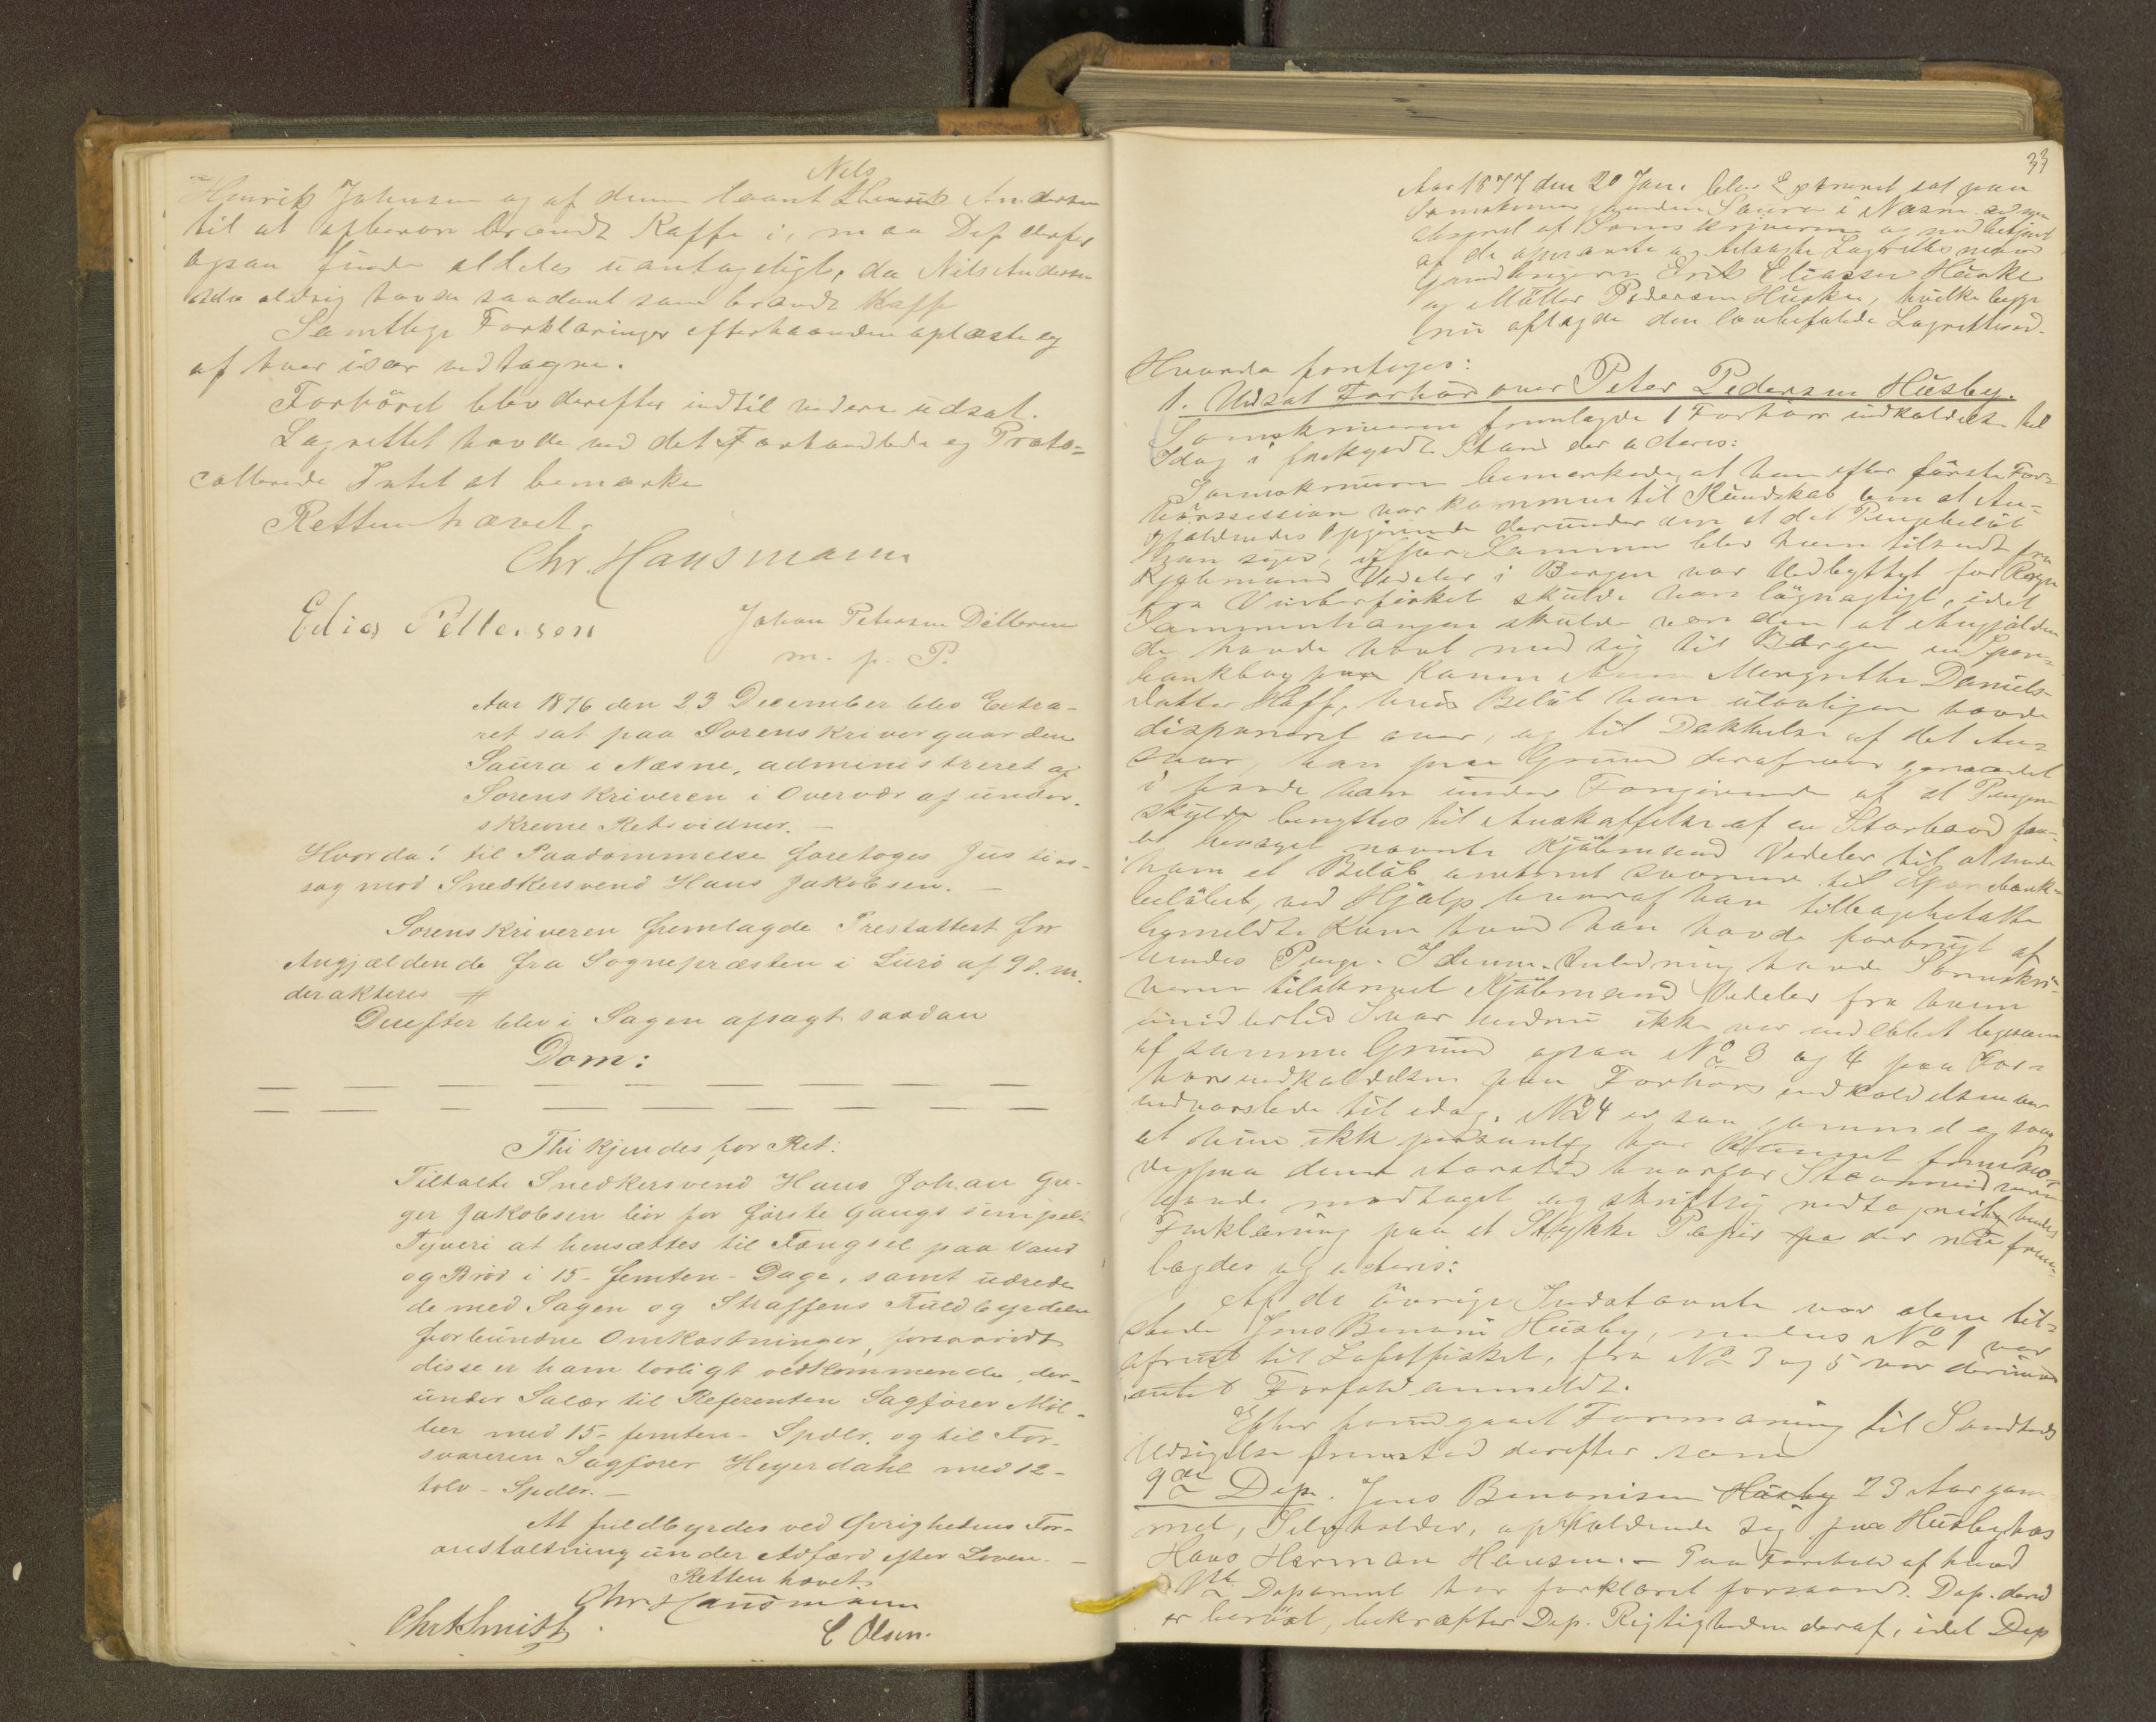 Nils
Henrik Johnsen og af denne laant Henrik Andersen
til at opbevare brændt Kaffe i, maa Dep derfor
ogsaa finde aldeles uantageligt, da Nils Andersen
aldrig havde saadant som brændt Kaffe
Samtlige Forklaringer efterhaanden oplæste og
af hver især vedtagne.
Forhöret blev derefter indtil videre udsat.
Lagrettet havde ved det Forhandlede og Proto-
collerede Intet at bemærke
Retten hævet.
Chr. Hausmann
Edias Pettersen
Johan Petersen
m. p. P.
Aar 1876 den 23 December blev Extra-
ret sat paa Sorenskrivergaarden
Saura i Næsne, administreret af
Sorenskriveren i Overvær af under-
skrevne Retsvidner. —
Hvorda! til Paadömmelse foretoges Justits-
sag mod Snedkersvend Hans Jakobsen. —
Sorenskriveren fremlagde Prestattest for
Angjældende fra Sognepræsten i Lurö af 9 d. m.
der akteres #
Derefter blev i Sagen afsagt saadan
Dom:
Thi kjendes for Ret:
Tiltalte Snedkersvend Hans Johan Gre-
ger Jakobsen bör for förste Gangs simpelt
Tyveri at hensættes til Fængsel paa Vand
og Bröd i 15 - femten - Dage, samt udrede
de med Sagen og Straffens Fuldbyrdelse
forbundne Omkostninger, forsaavidt
disse er ham lovligt vedkommende, der-
under Salær til Referenten Sagförer Möl-
ler med 15 - femten - Spdlr. og til For-
svareren Sagförer Heyerdahl med 12 -
tolv - Spdlr. —
At fuldbyrdes ved Övrighedens For-
anstaltning under Adfærd efter Loven. —
Retten hævet.
Chr. Hausmann
Chr Schmidt
C Olsen.
33
Aar 1877 den 20 Jan. blev Extraret sat paa
Sorenskrivergaarden Saura i Næsne
af Sorenskriveren og med betjent
af de opnævnte og Lagrettesmænd
Gaardbrugerne Erik Eliassen Haske
og Möller Pedersen Husby, hvilke begge
nu aflagde den lovbefalede Lagrettesed.
Hvorda foretoges:
1. Udsat Forhör over Peter Pedersen Husby.
Sorenskriveren fremlagde 1 Forhörs indkaldelse til
Idag i forkyndt Stand der acteres:
Sorenskriveren bemærkede, at han efter förste For-
hörssession var kommen til Kundskab om at An-
gjældendes Opgivende derunder om at det Pengebelöb
han siger, ifjor Sommer blev ham tilsendt fra
Kjöbmand Vedeler i Bergen var Udbyttet for Rogn
fra Vinterfisket skulde være lögnagtigt, idet
Sammenhængen skulde være den at Angjælden-
de havde havt med sig til Bergen en Spare-
bankbog paa Konen Anne Margrethe Daniels-
datter Hoff, hvis Belöb han ulovligen havde
disponeret over, og til Dækkelse af det An-
svar, han paa Grund deraf var geraadet
i havde han under Foregivende af at Pengene
skulde benyttes til Anskaffelse af en Storbaad faa-
et bevæget nævnte Kjöbmand Vedeler til at sende
ham et Belöb omtrent svarende til Sparebank-
belöbet, ved Hjælp hvoraf han tilbagebetalte
bemeldte Kone hvad han havde forbrugt af
hendes Penge. I denne Anledning havde Sorenskri-
veren tilskrevet Kjöbmand Vedeler fra hvem
imidlertid Svar endnu ikke var indlöbet ligesom
af samme Grund ogsaa No 3 og 4 paa For-
hörsindkaldelsen paa Forhörs indkaldelsen var
indvarslede til idag. No 4 er saa gammel og svag
at hun ikke personlig har kunnet fremmöde
paa denne Aarstid hvorfor Stevnevidnerne
havde modtaget og skriftlig nedtegnet hendes
Forklaring paa et Stykke Papir der nu frem-
lagdes og acteres:
Af de övrige Indstævnte var alene til-
stede Jens Benoni Husby, medens No 1 var
afreist til Lofotfisket, fra No 3 og 5 var derimod
intet Forfald anmeldt.
Efter foregaaet Formaning til Sandheds
Udsigelse fremstod derefter som
9de Dep. Jens Benonisen Husby 23 Aar gam-
mel, Selvholder, opholdende sig paa Husby hos
Hans Herman Hansen. — Paa Forehold af hvad
Deponent har forklaret forsaavidt Dep. derved
er berört, bekræfter Dep. Rigtigheden deraf, idet Dep